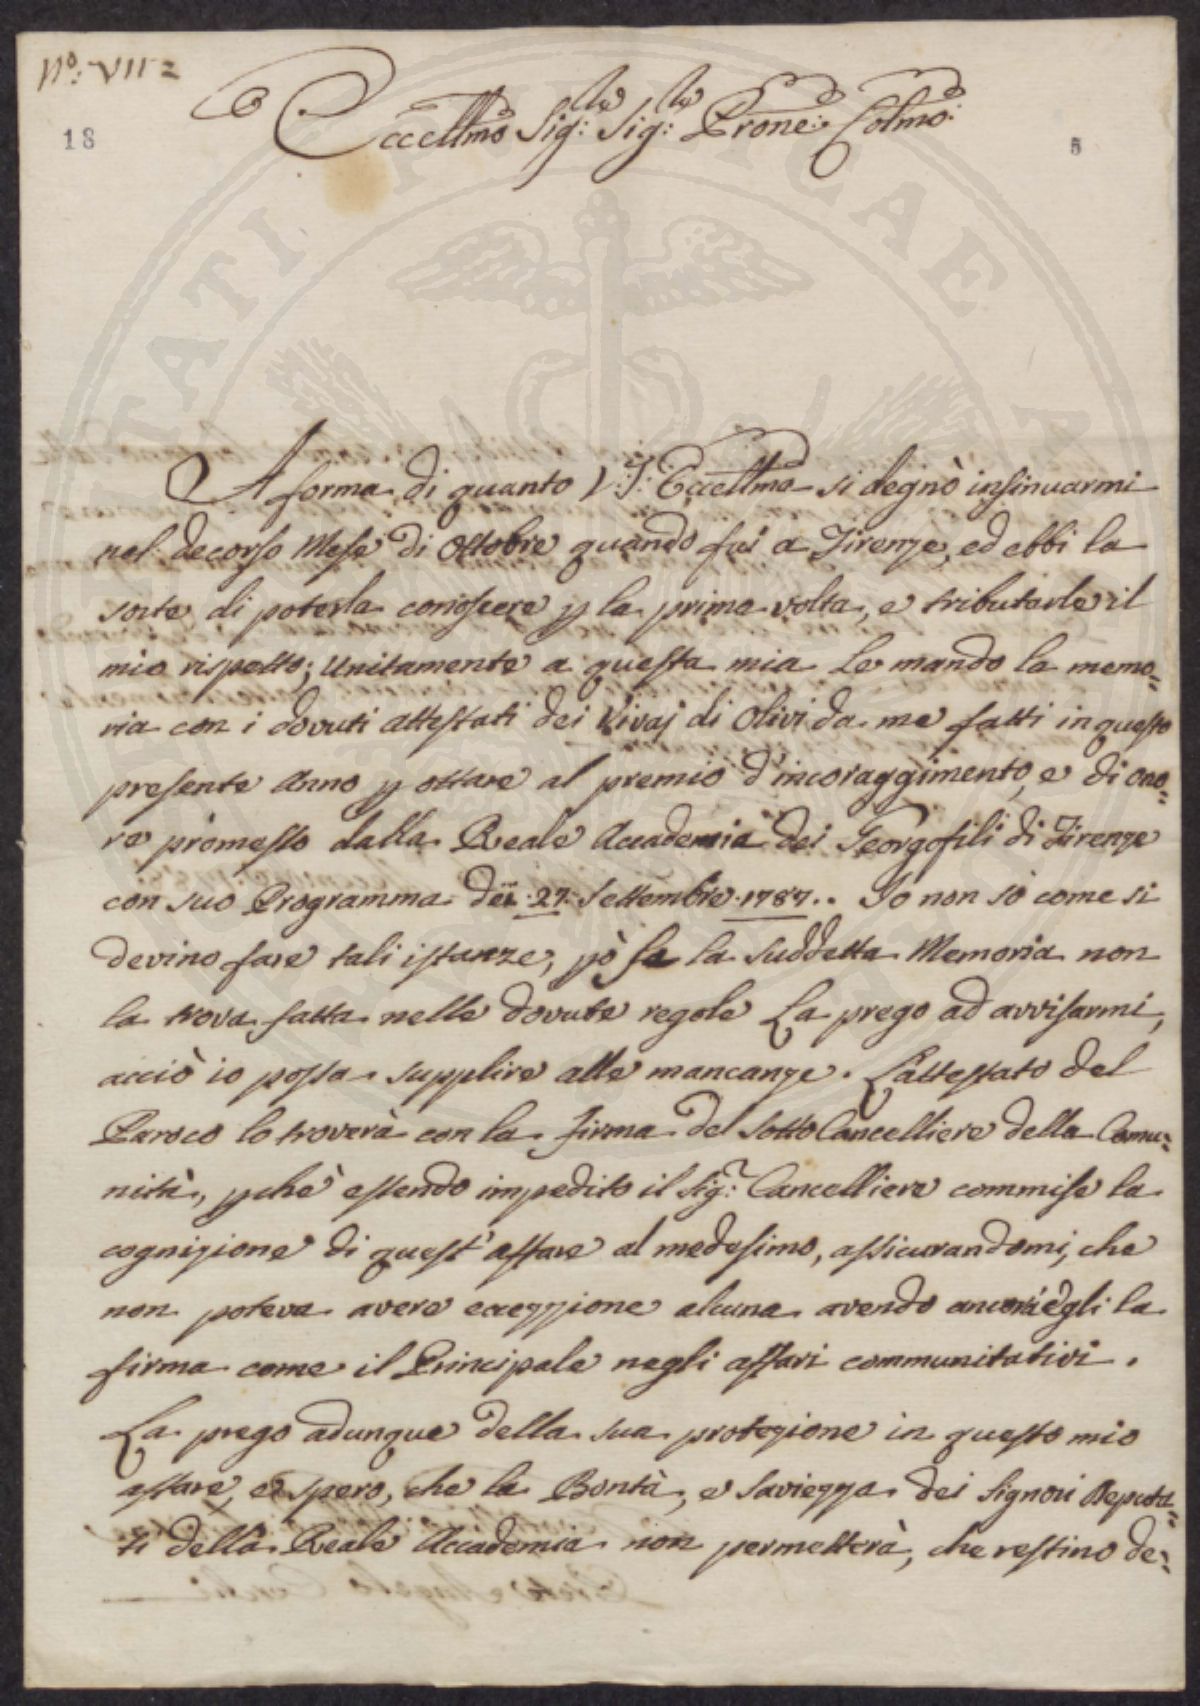 N.º VII =
18
5
Eccellmo Sig:re Sig:re Prone: Colmo:
A forma di quanto V: S: Eccellma si degnò insinuarmi
nel decorso Mese di Ottobre quando fui a Firenze, ed ebbi la
sorte di poterla conoscere p la prima volta, e tributarle il
mio rispetto; Unitamente a questa mia Le mando la memo=
ria con i dovuti attestati dei Vivaj di Olivi da me fatti in questo
presente Anno p ottare al premio d'incoraggimento, e di ono=
re promesso dalla Reale Accademia dei Georgofili di Firenze
con suo Programma dei 27. Settembre 1787.. Io non sò come si
devino fare tali istanze, pò se la suddetta Memoria non
la trova fatta nelle dovute regole La prego ad avvisarmi,
acciò io possa supplire alle mancanze. L'attestato del
Paroco lo troverà con la firma del Sotto Cancelliere della Comu=
nità, pchè essendo impedito il Sig:r Cancelliere commise la
cognizione di quest'affare al medesimo, assicurandomi, che
non poteva avere eccezzione alcuna avendo ancora egli la
firma come il Principale negli affari communitativi.
La prego adunque della sua protezione in questo mio
affare, e spero, che la Bontà, e Saviezza dei Signori Deputa=
ti della Reale Accademia non permetterà, che restino de=